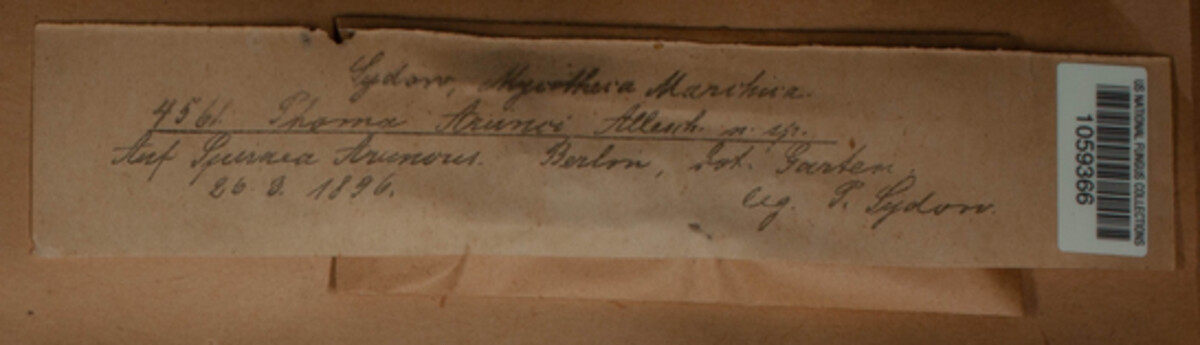 Sydow, Mycotheca Marchica.
4561. Phoma Arunci Allesch. n. sp.
Auf Spiraea Aruncus. Berlin, bot. Garten.
26. 3. 1896. leg. P. Sydow.
US NATIONAL FUNGUS COLLECTIONS
1059366